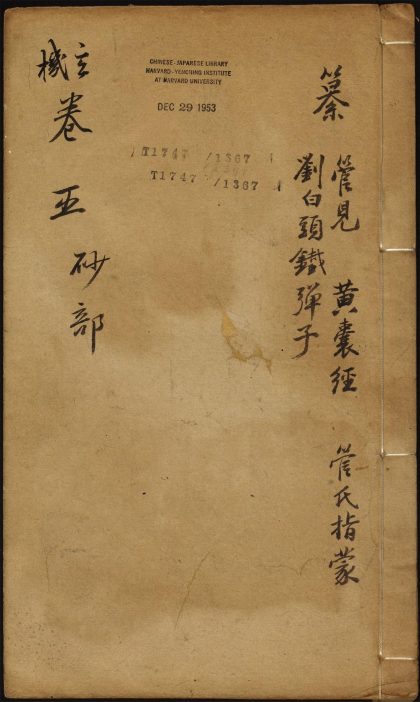 纂
管見 黃囊經 管氏指蒙
劉白頭鐵彈子
CHINESE-JAPANESE LIBRARY
HARVARD-YENCHING INSTITUTE
AT HARVARD UNIVERSITY
DEC 29 1953
T1747 /1367
T1747 /1367
玄機
卷五 砂部